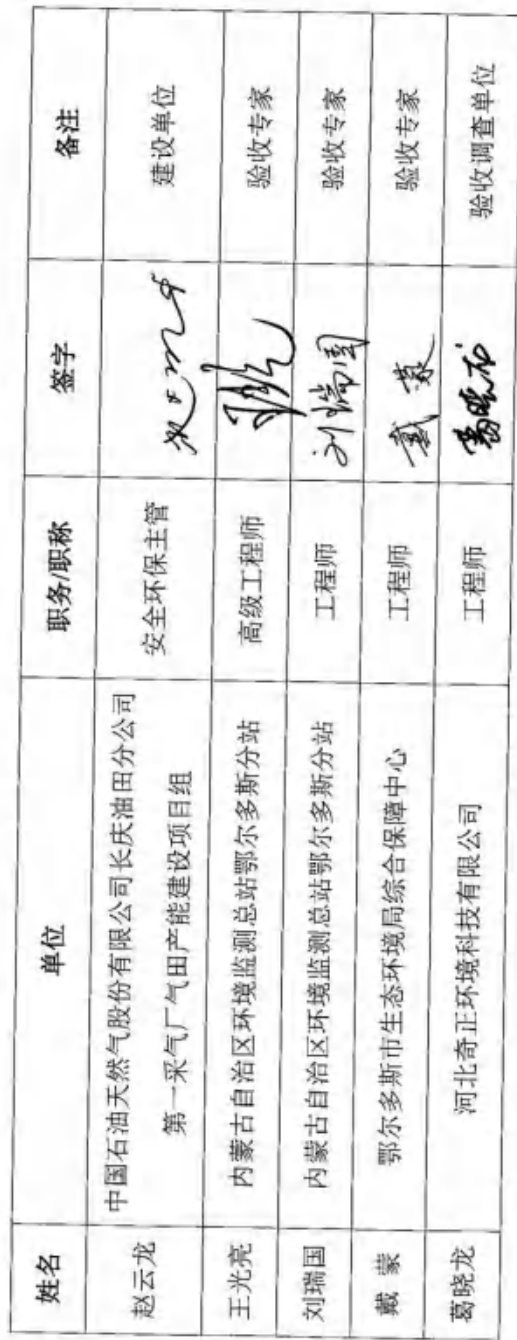 姓名 单位 职务/职称 签字 备注
赵云龙 中国石油天然气股份有限公司长庆油田分公司 安全环保主管 建设单位
第一采气厂气田产能建设项目组
王光亮 内蒙古自治区环境监测总站鄂尔多斯分站 高级工程师 验收专家
刘瑞国 内蒙古自治区环境监测总站鄂尔多斯分站 工程师 刘瑞国 验收专家
戴蒙 鄂尔多斯市生态环境局综合保障中心 工程师 戴蒙 验收专家
葛晓龙 河北奇正环境科技有限公司 工程师 葛晓龙 验收调查单位